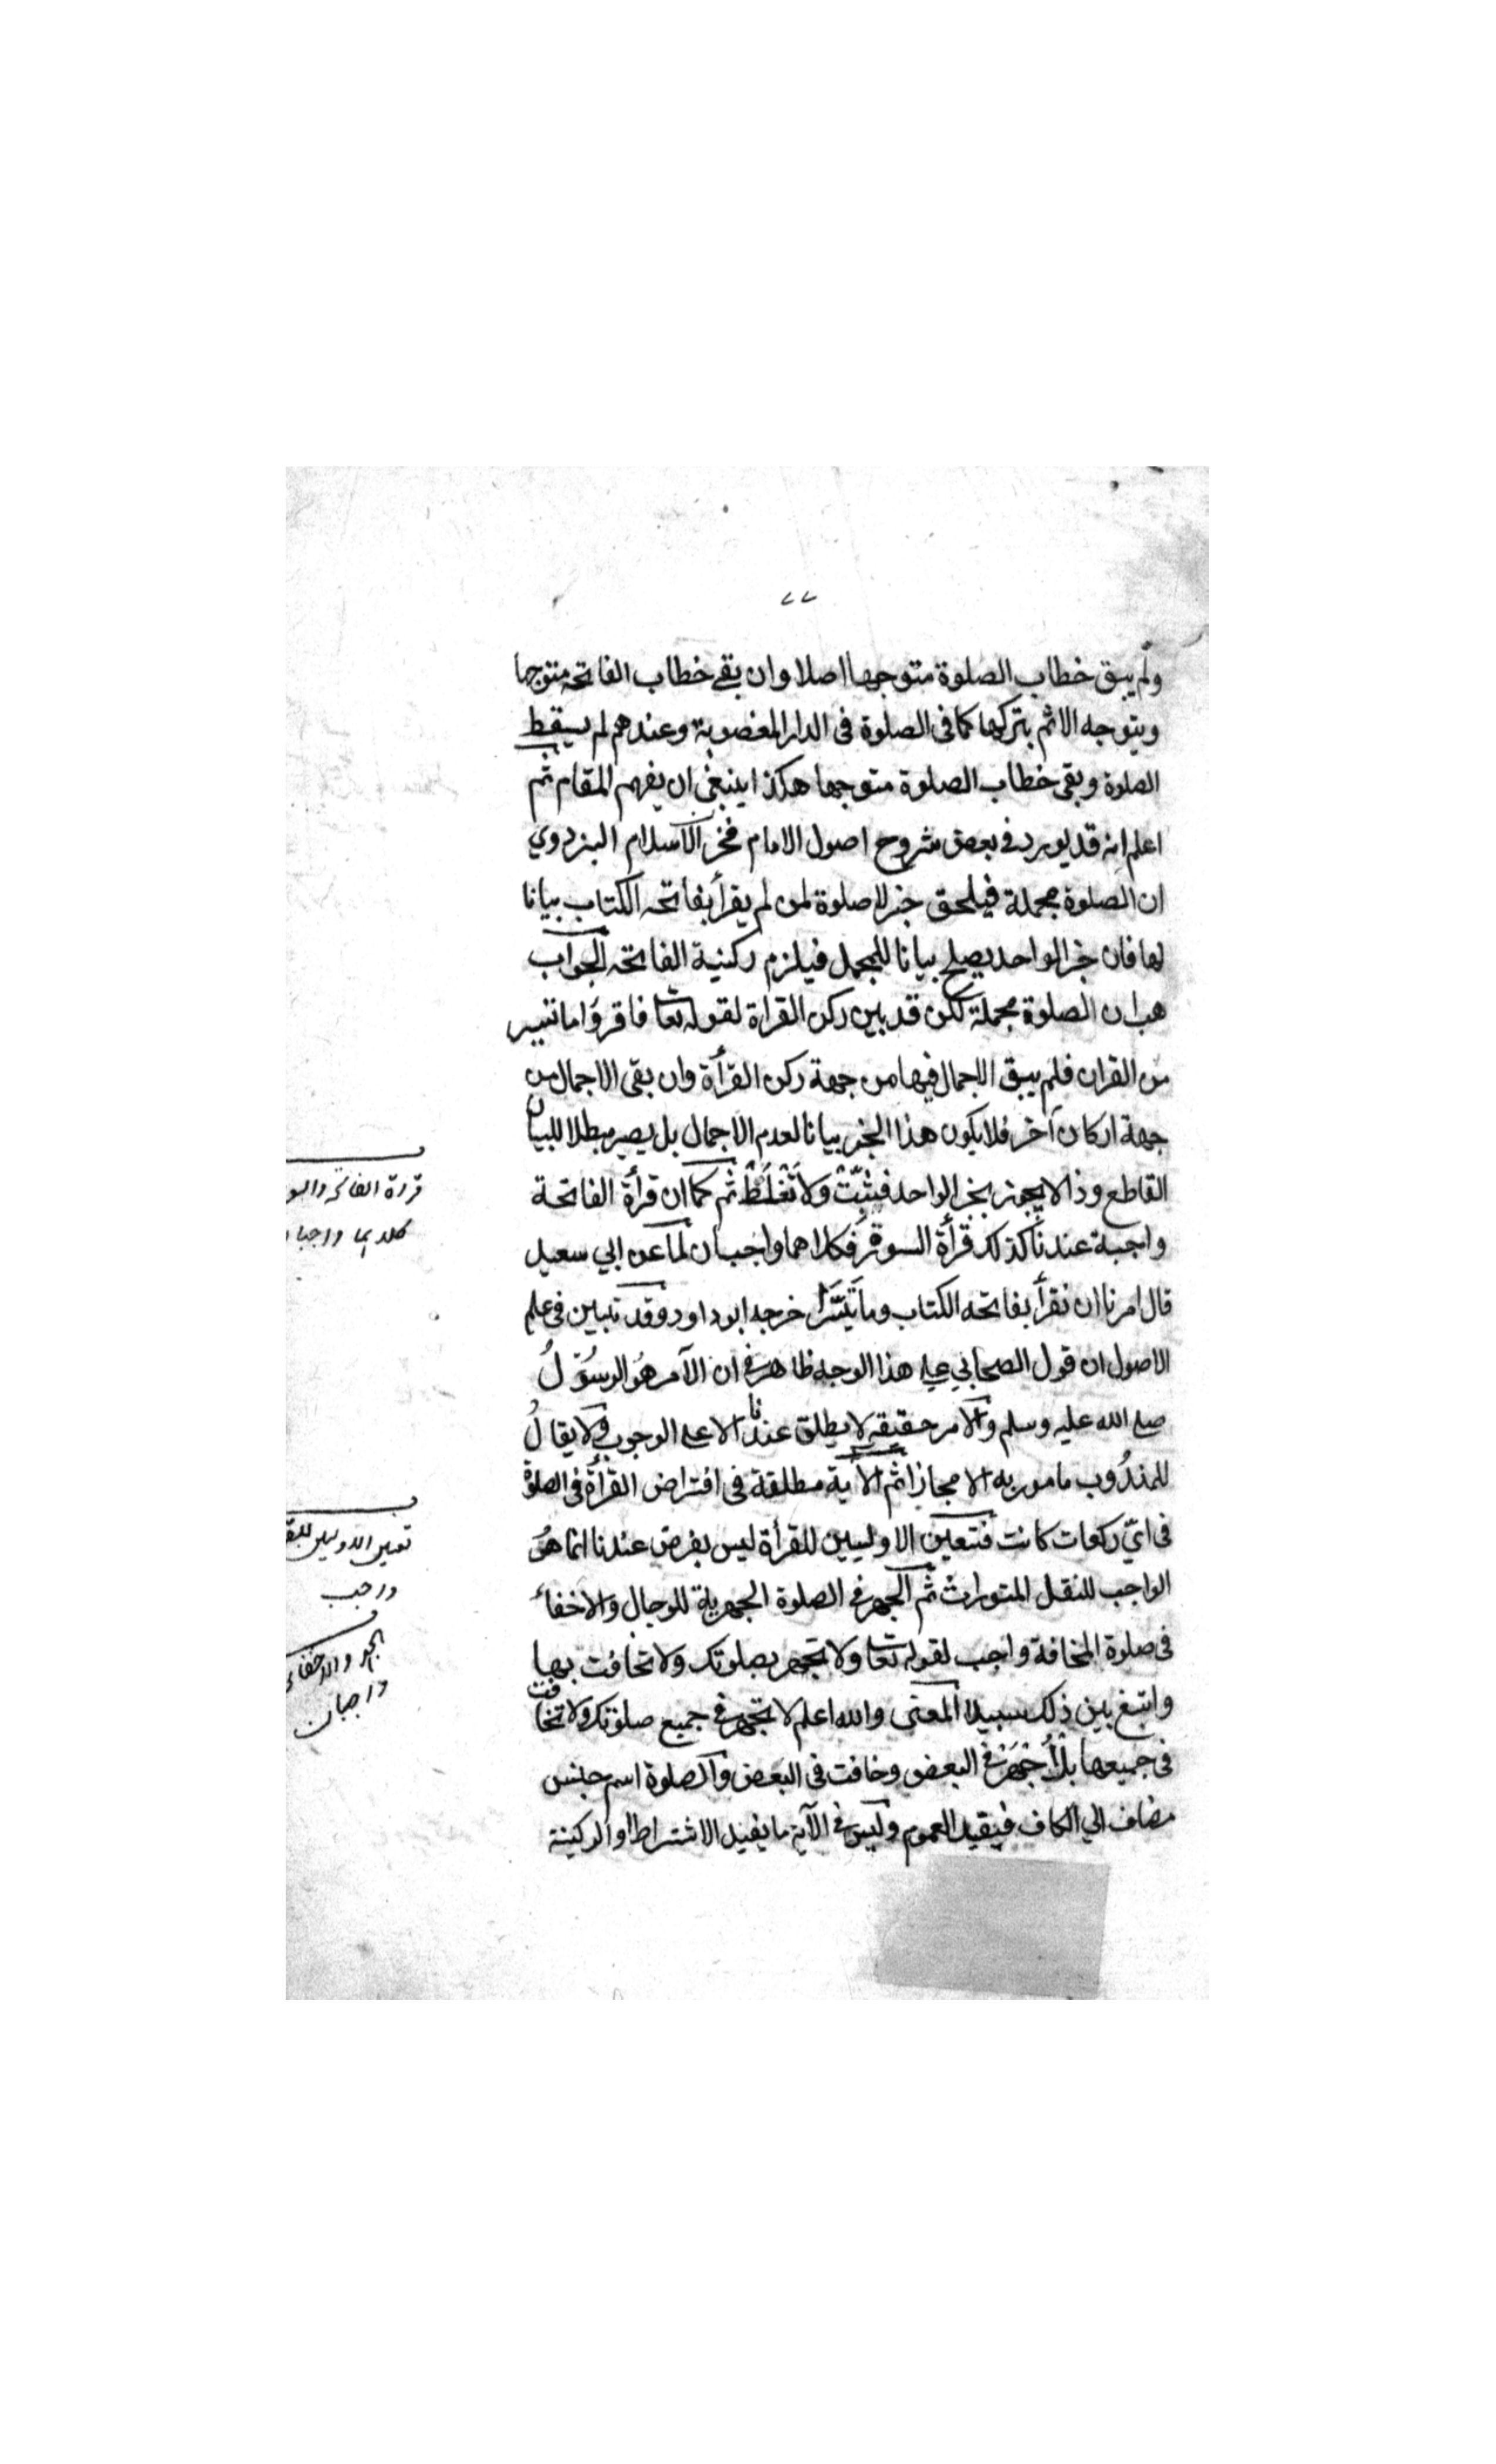 ٧٧
ولم يبق خطاب الصلوة متوجها اصلا وان بقے خطاب الفاتحه متوجها
ويتوجه الاثم بتركها كما فى الصلوة فى الدار المغصوبة وعندهم لم يسقط
الصلوة وبقى خطاب الصلوة متوجها هكذا ينبغى ان يفهم المقام ثم
اعلم انه قد يورد فے بعض شروح اصول الامام فخر الاسلام البزدوي
ان الصلوة مجملة فيلحق خبر لا صلوة لمن لم يقرأ بفاتحه الكتاب بيانا
لها فان خبر الواحد يصلح بيانا للمجمل فيلزم ركنية الفاتحه الجواب
هب ان الصلوة مجملة لكن قد بين ركن القراة لقوله تعا فاقرؤا ما تيسر
من القران فلم يبق الاجمال فيها من جهة ركن القرأة وان بقى الاجمال من
جهة اركان آخر فلا يكون هذا الخبر بيانا لعدم الاجمال بل يصير مبطلا للبيان
القاطع وذا لا يجوز بخبر الواحد فَتَثَبَّتْ وَلَا تَغْلَطْ ثم كما ان قرأة الفاتحة
واجبة عندنا كذلك قرأة السورة فكلاهما واجبان لما عن ابي سعيد
قال امرنا ان نقرأ بفاتحه الكتاب وما تَيَسَّرَ اخرجه ابو داود وقد تبين فى علم
الاصول ان قول الصحابي علے هذا الوجه ظاهر فے ان الآمر هُوَ الرسُوْلُ
صلے الله عليه وسلم والامر حقيقه لا يطلق عندنا الا علے الوجوب فلا يقالُ
للمندُوب مامور به الا مجازا ثم الآية مطلقة فى افتراض القرأة فى الصلوة
فى ايّ ركعات كانت فتعين الاوليين للقرأة ليس بفرض عندنا انما هُوَ
الواجب للنقل المتوارث ثم الجهر فے الصلوة الجهرية للرجال والاخفاء
فى صلوة المخافة واجب لقوله تعا ولا تجهر بصلوتك ولا تخافت بها
وابتغ بين ذلك سبيلا المعنى والله اعلم لا تجهر فے جميع صلوتك ولا تخافت
فى جميعها بل اُجْهَرْ فے البعض وخافت فى البعض والصلوة اسم جنس
مضاف الي الكاف فيفيد العموم وليس فے الآية ما يفيد الاشتراط او الركنية
قرءة الفاتحه والسو
كلاهما واجبا
تعين الاوليين للقر
واجب
الجهر والاخفاء
واجبان